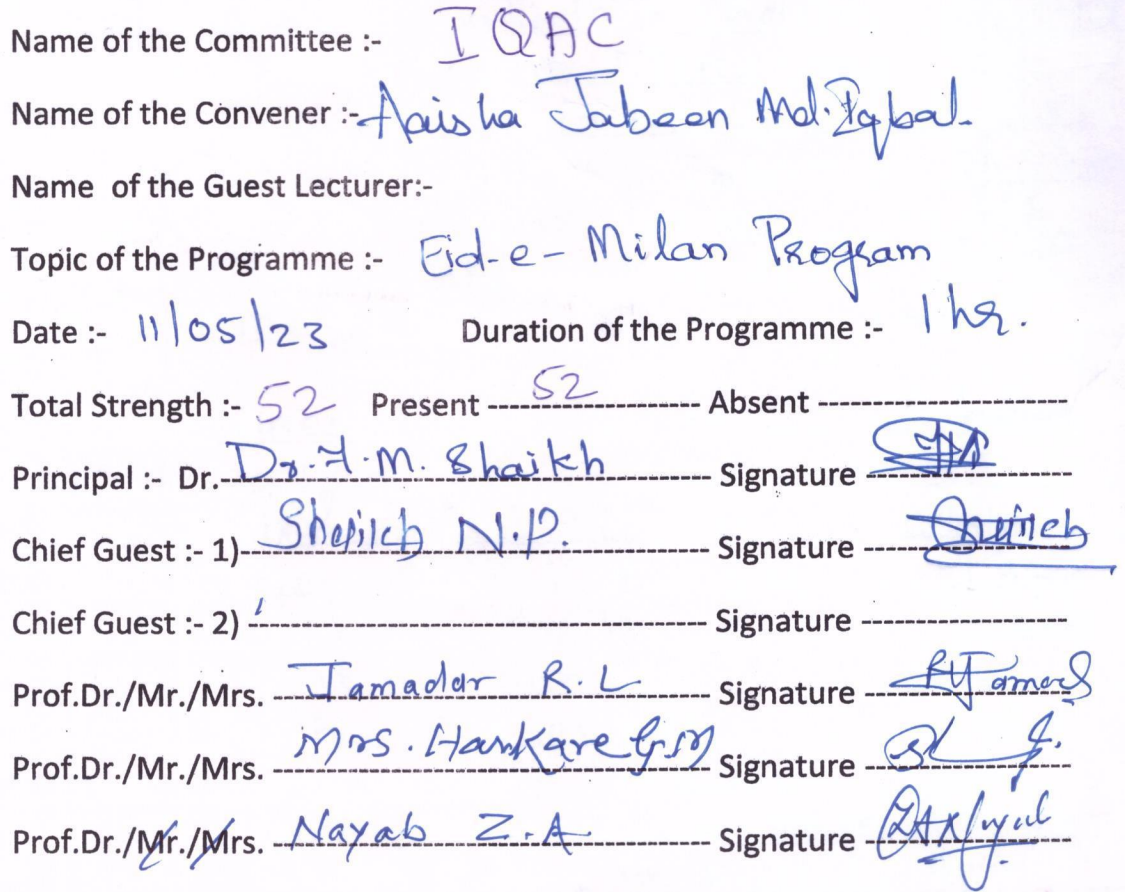 Name of the Committee :- IQAC
Name of the Convener :- Aaisha Jabeen Md. Iqbal
Name of the Guest Lecturer:-
Topic of the Programme :- Eid-e-Milan Program
Date :- 11/05/23 Duration of the Programme :- 1 hr.
Total Strength :- 52 Present ----52---- Absent ----
Principal :- Dr. Dr. F.M. Shaikh Signature
Chief Guest :- 1) N.P. Signature
Chief Guest :- 2) Signature
Prof.Dr./Mr./Mrs. Jamadar R.L Signature
Prof.Dr./Mr./Mrs. Mrs. Hankare G.M Signature
Prof.Dr./Mr./Mrs. Nayab Z.A Signature